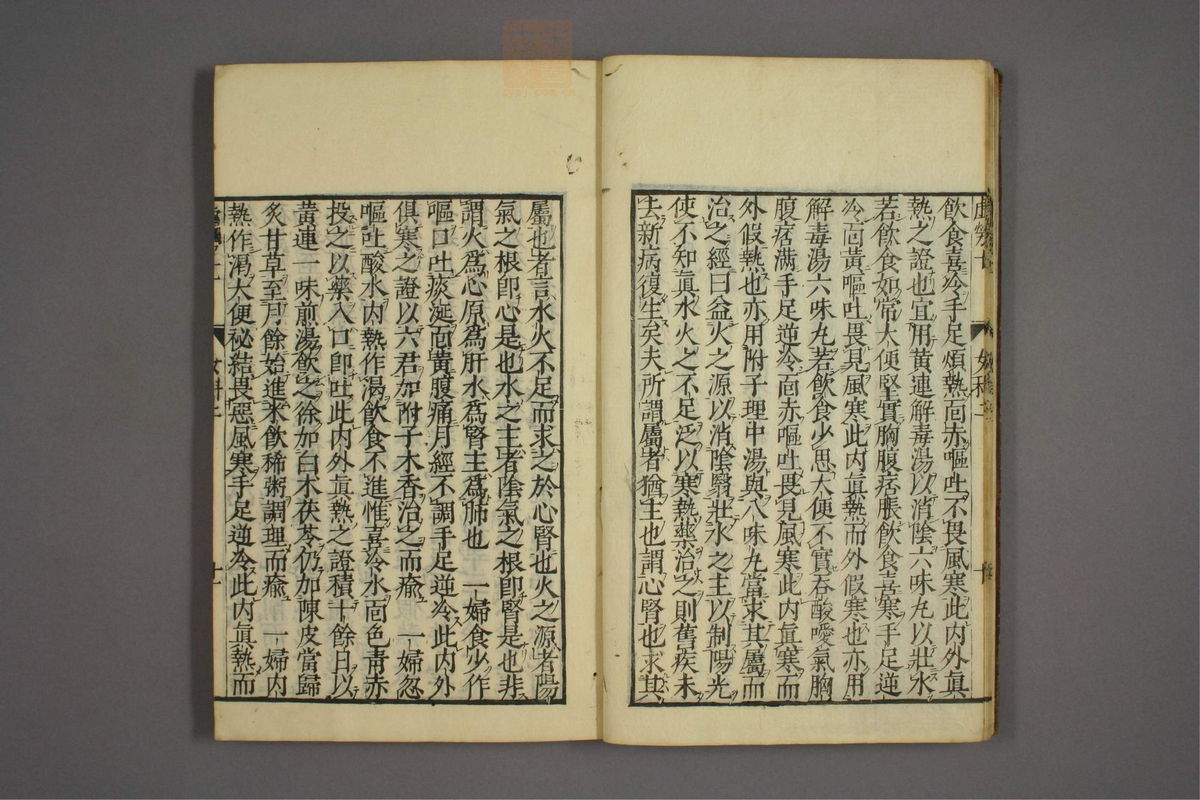 飲食喜冷手足煩熱面赤嘔吐不畏風寒此内外眞
熱之證也宜用黃連解毒湯以消陰六味丸以壯水
若飲食如常大便堅實胸腹痞脹飲食喜寒手足逆
冷面黃嘔吐畏見風寒此内眞熱而外假寒也亦用
解毒湯六味丸若飲食少思大便不實吞酸噯氣胸
腹痞滿手足逆冷面赤嘔吐畏見風寒此内眞寒而
外假熱也亦用附子理中湯與八味丸當求其屬而
治之經曰益火之源以消陰翳壯水之主以制陽光
使不知眞水火之不足泛以寒熱藥治之則舊疾未
去新病復生矣夫所謂屬者猶主也謂心腎也求其
女科二
十
屬也者言水火不足而求之於心腎也火之源者陽
氣之根卽心是也水之主者陰氣之根卽腎是也非
謂火爲心原爲肝水爲腎主爲肺也 一婦食少作
嘔口吐痰涎面黃腹痛月經不調手足逆冷此内外
俱寒之證以六君加附子木香治之而瘉 一婦忽
嘔吐酸水内熱作渴飲食不進惟喜冷水面色靑赤
投之以藥入口卽吐此内外眞熱之證積十餘日以
黃連一味煎湯飲之徐加白朮茯苓仍加陳皮當歸
炙甘草至月餘始進米飲稀粥調理而瘉 一婦内
熱作渴大便秘結畏惡風寒手足逆冷此内眞熱而